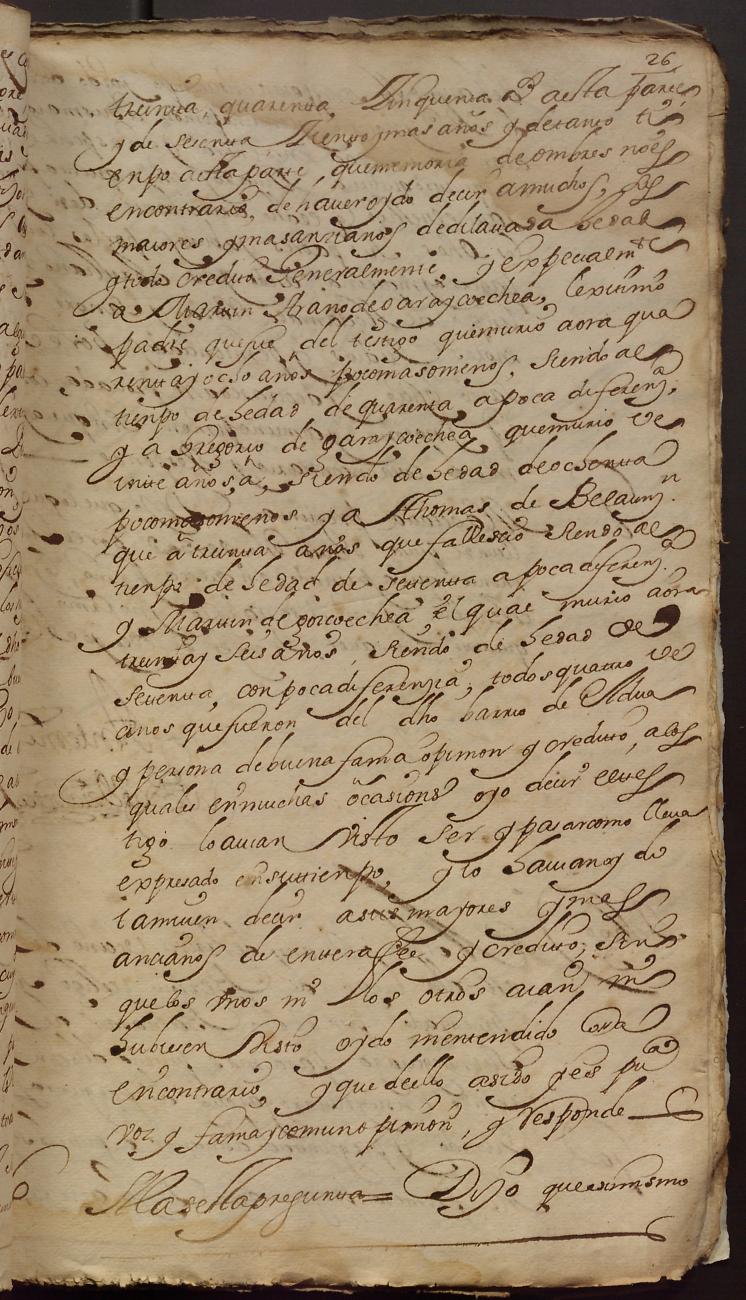 26
treinta, quarenta, Zinquenta as. a esta parte,
y de sesenta Ziento y mas años y de tanto ti
enpo a esta parte, que memoria de ombres no es
en contrario, de haver oydo decir a muchos, sus
maiores y mas anzianos de dilatada hedad
y todo credito Generalmente, y expecialmte
a Martin de garaycoechea, lexitimo
padre que fue del testigo que murio aora qua
renta y ocho años poco mas o menos, siendo al
tienpo de hedad de quarenta a poca diferenzª.
y a Gregorio de garaycoechea que murio ve
inte años, a, siendo de hedad de ochenta
poco mas o menos y a Thomas de Belaunzn.
que a treinta años que fallescio siendo al
tienpo de hedad de setenta a poca diferenzª.
y Martin de goicoechea, el qual murio aora
treinta y seis años, siendo de hedad de
setenta, con poca diferenzia, todos quatro ve
cinos que fueron del dho barrio de Aldua
y persona de buena fama opinion y credito, a los
quales en muchas ocasiones oyo decir el tes
tigo lo avian visto ser y pasar como lleva
expresado en su tienpo, y lo havian oydo
tamvien decir a sus mayores y mas
ancianos de entera fee y credito, sin
que los unos ni los otros aian ni
hubiesen visto oydo ni entendido cosa
en contrario, y que de ello a sido y es puca
voz y fama y comun opinion, y responde
A la sesta pregunta = Dijo que asimismo